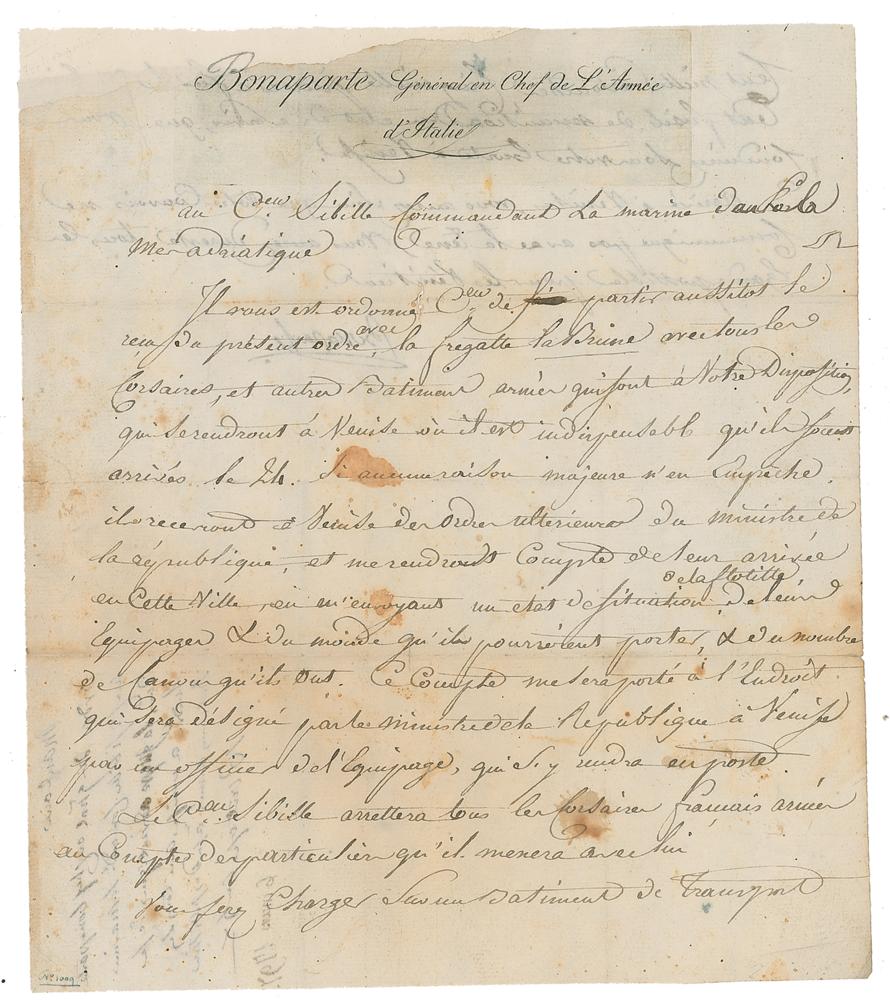 Bonaparte Général en Chef de L'Armée
d'Italie
au C.en Sibille Commandant La marine dans la
Mer adriatique
Il vous est ordonné C.en de partir aussitot le
reçu du présent ordre, avec la fregatte la Brune avec tous les
Corsaires, et autres Batiments armés qui sont à Votre Disposition,
qui se rendront à Venise où il est indispensable qu'ils soient
arrivés le 24. Si aucune raison majeure n'en Empêche.
ils recevront à Venise des ordres ulterieures du ministre de
la république, et me rendront Compte de leur arrivée
en Cette Ville, en m'envoyant un etat de situation de la flotille, de leurs
Equipages & du monde qu'ils pourroient porter, & du nombre
de Canons qu'ils ont. Ce Compte me sera porté à l'Endroit
qui sera désigné par le ministre de la Republique à Venise
par un officier de l'Equipage, qui s'y rendra en poste.
Le C.en Sibille arrettera tous les Corsaires français armés
au Compte des particuliers qu'il menera avec lui
Vous ferez Charger Sur un Batiment de Transport
N° 1009